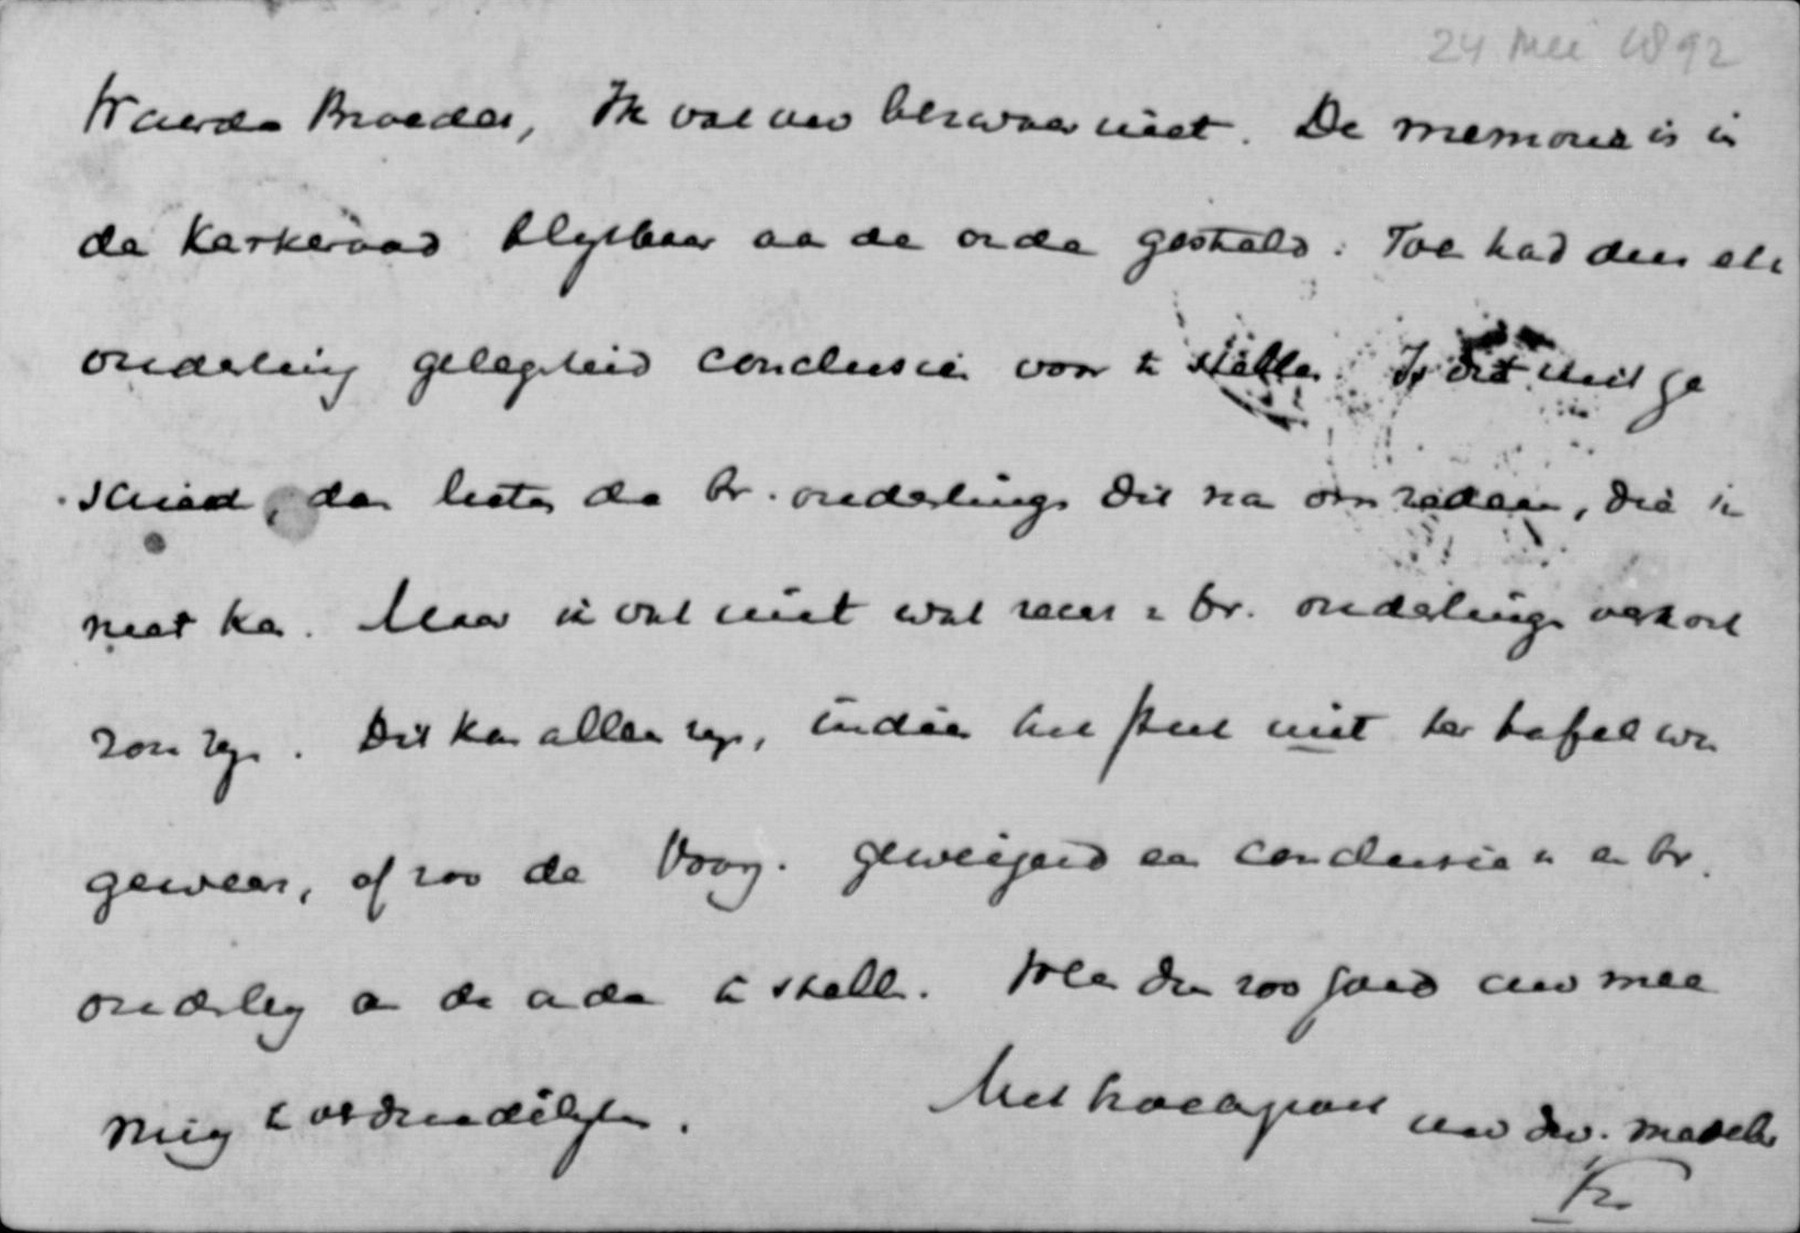 24 Mei 1892
Waarde Broeder, Ik vat uw bezwaar niet. De memorie is in
de Kerkeraad blijkbaar aan de orde gesteld. Toen had dus elk
ouderling gelegenheid conclusien voor te stellen. Is dit niet ge
schied, dan lieten de br. ouderlingen dit na om redenen, die ik
niet ken. Maar ik vat niet wat br. ouderlingen verkort
zou zijn. Dit kan alleen zijn, indien het stuk niet ter tafel ware
geweest, of zoo de Voorz. geweigerd een conclusie v. een br.
ouderling aan de orde te stellen. Wees dus zoo goed uw mee
ning te verduidelijken. Met hoogachting uw dw. medebr
Kr.